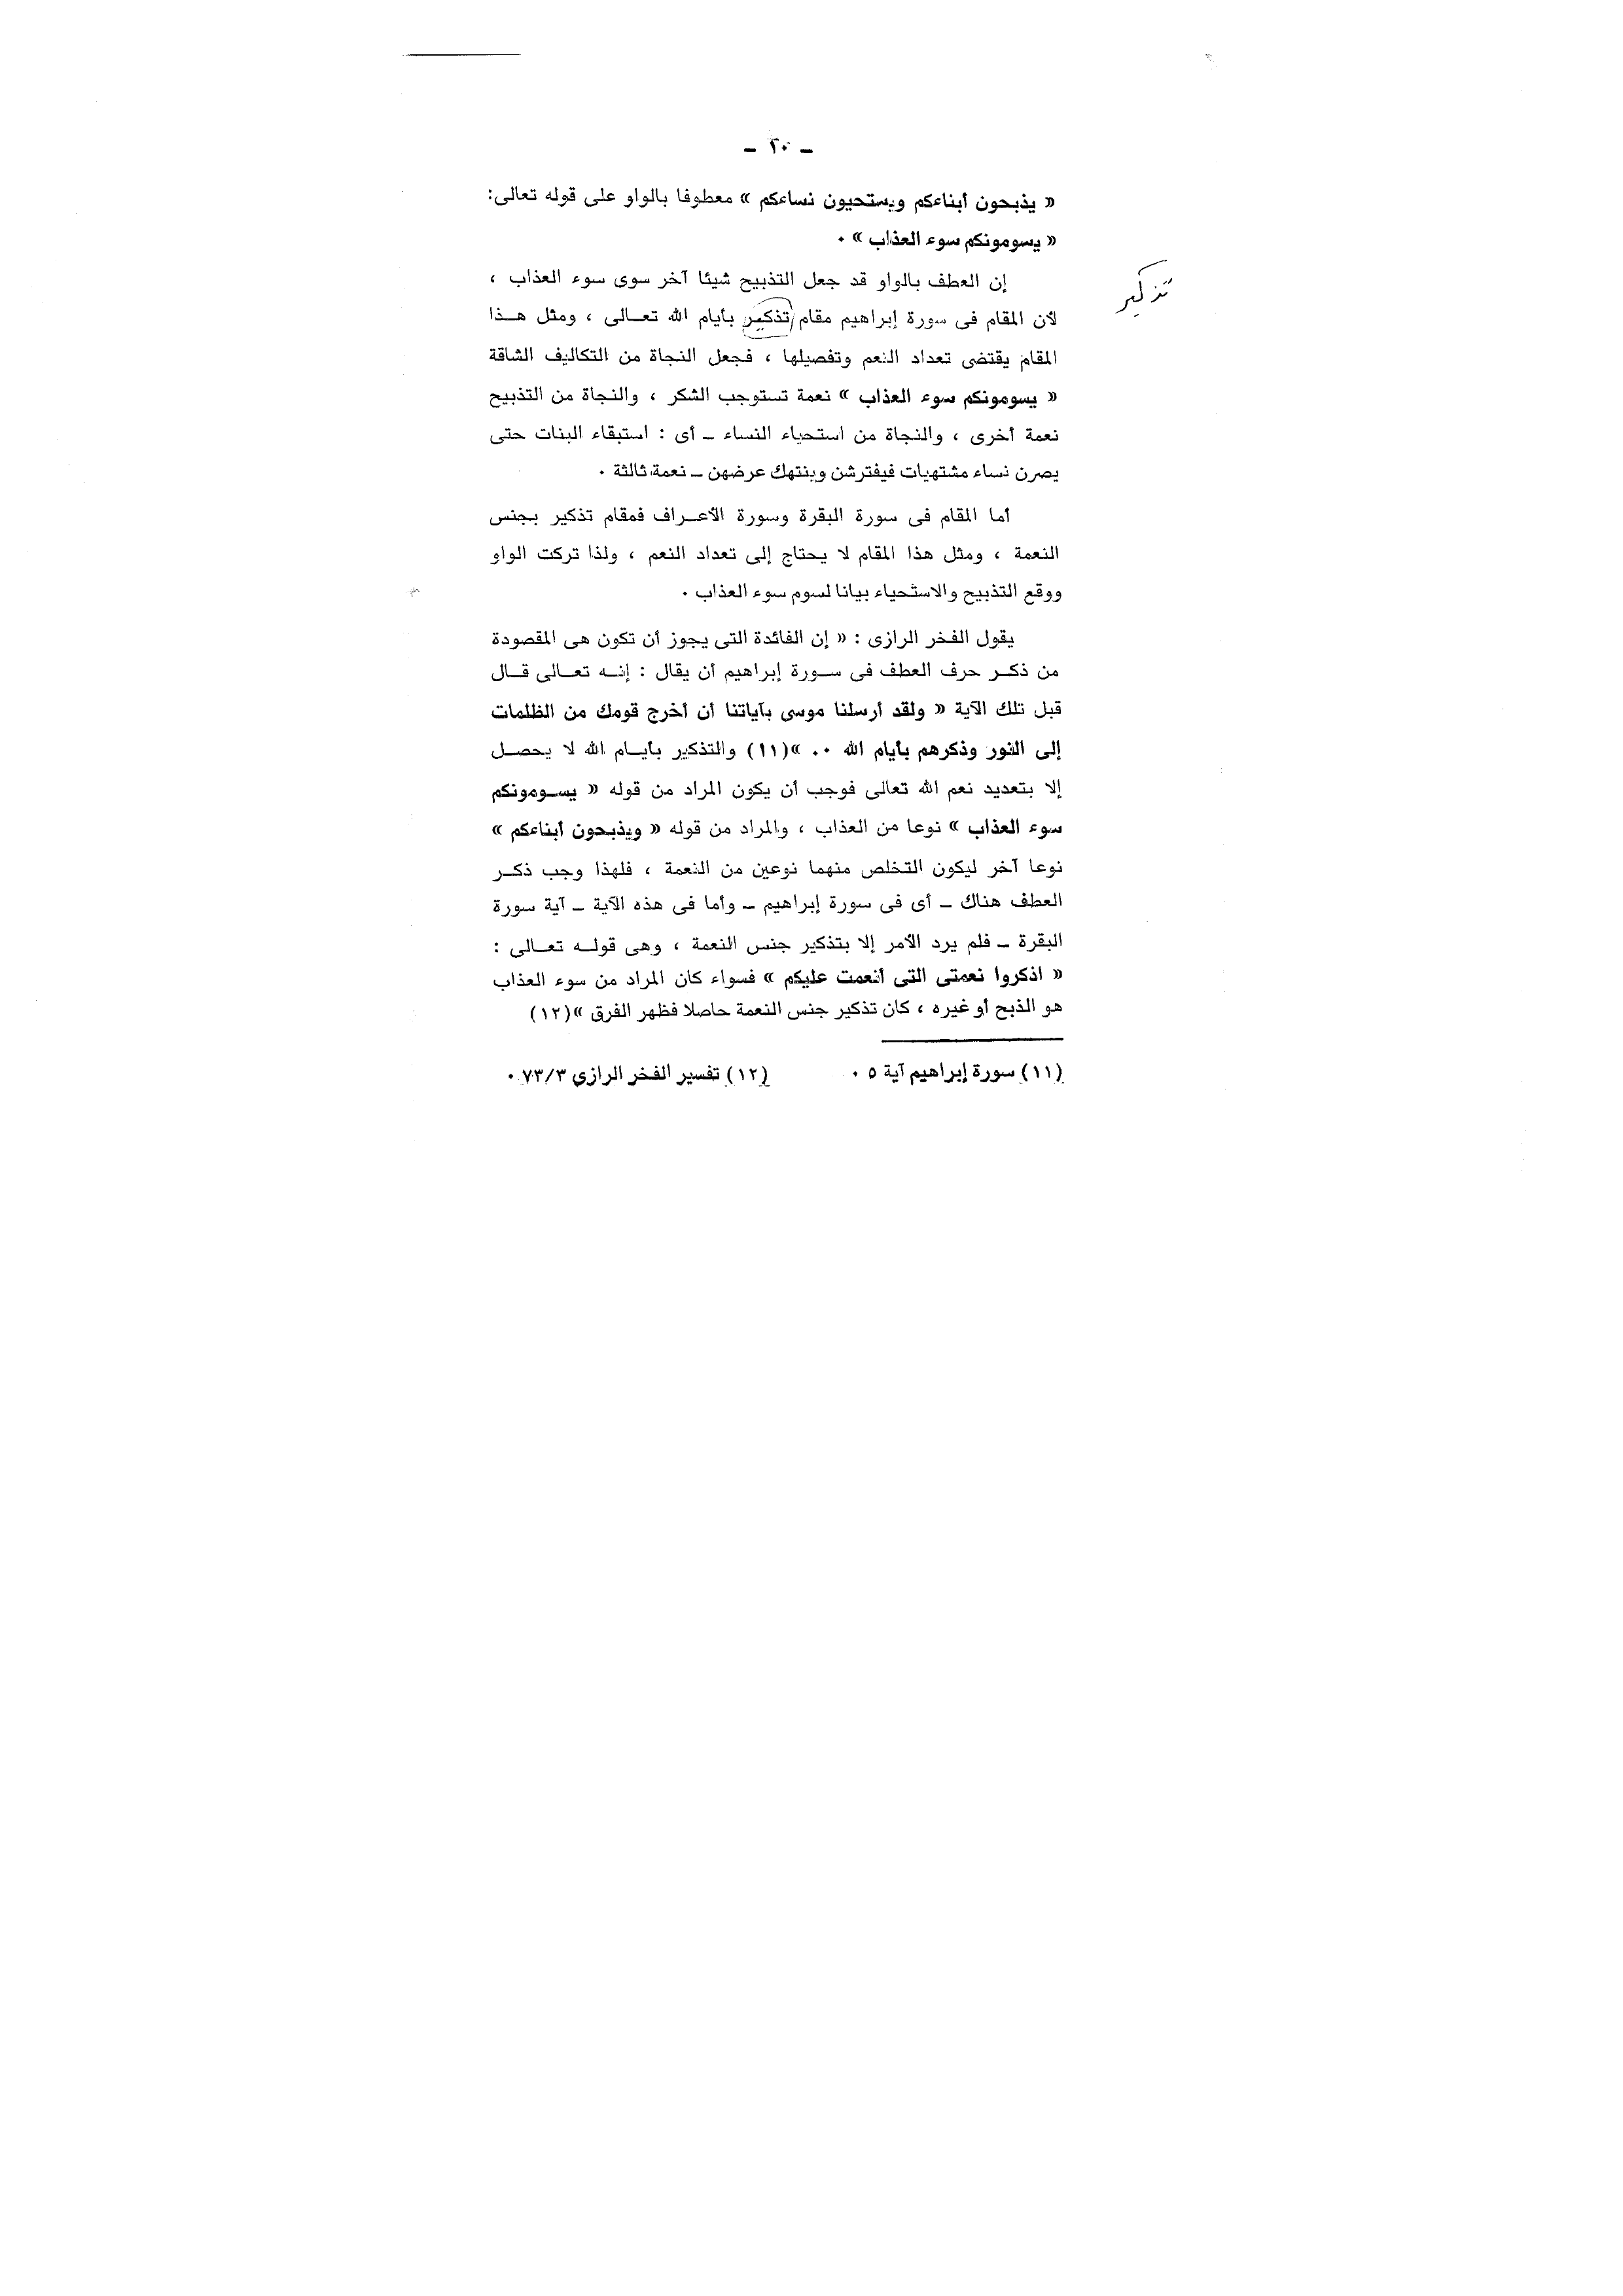 ــ ٢٠ ــ
« يذبحون أبناءكم ويستحيون نساءكم » معطوفا بالواو على قوله تعالى:
« يسومونكم سوء العذاب » ٠
إن العطف بالواو قد جعل التذبيح شيئا آخر سوى سوء العذاب ،
تذكير
لأن المقام فى سورة إبراهيم مقام تذكير بأيام الله تعـالى ، ومثل هـذا
المقام يقتضى تعداد النعم وتفصيلها ، فجعل النجاة من التكاليف الشاقة
« يسومونكم سوء العذاب » نعمة تستوجب الشكر ، والنجاة من التذبيح
نعمة أخرى ، والنجاة من استحياء النساء ــ أى : استبقاء البنات حتى
يصرن نساء مشتهيات فيفترشن وينتهك عرضهن ــ نعمة ثالثة ٠
أما المقام فى سورة البقرة وسورة الأعـراف فمقام تذكير بجنس
النعمة ، ومثل هذا المقام لا يحتاج إلى تعداد النعم ، ولذا تركت الواو
ووقع التذبيح والاستحياء بيانا لسوم سوء العذاب ٠
يقول الفخر الرازى : « إن الفائدة التى يجوز أن تكون هى المقصودة
من ذكـر حرف العطف فى سـورة إبراهيم أن يقال : إنـه تعـالى قـال
قبل تلك الآية « ولقد أرسلنا موسى بآياتنا أن أخرج قومك من الظلمات
إلى النور وذكرهم بأيام الله ٠٠ »(١١) والتذكير بأيـام الله لا يحصـل
إلا بتعديد نعم الله تعالى فوجب أن يكون المراد من قوله « يسـومونكم
سوء العذاب » نوعا من العذاب ، والمراد من قوله « ويذبحون أبناءكم »
نوعا آخر ليكون التخلص منهما نوعين من النعمة ، فلهذا وجب ذكـر
العطف هناك ــ أى فى سورة إبراهيم ــ وأما فى هذه الآية ــ آية سورة
البقرة ــ فلم يرد الأمر إلا بتذكير جنس النعمة ، وهى قولـه تعـالى :
« اذكروا نعمتى التى أنعمت عليكم » فسواء كان المراد من سوء العذاب
هو الذبح أو غيره ، كان تذكير جنس النعمة حاصلا فظهر الفرق »(١٢)
(١١) سورة إبراهيم آية ٥ ٠ (١٢) تفسير الفخر الرازي ٧٣/٣ ٠